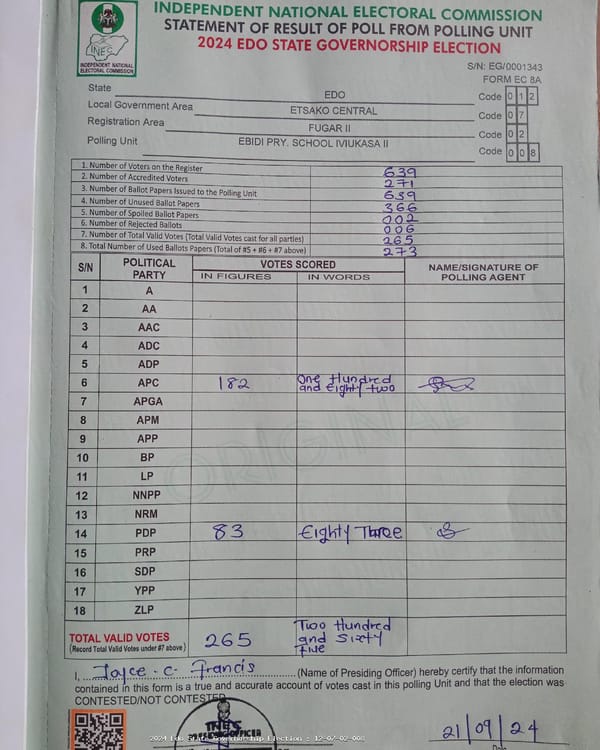 INDEPENDENT NATIONAL ELECTORAL COMMISSION
STATEMENT OF RESULT OF POLL FROM POLLING UNIT
2024 EDO STATE GOVERNORSHIP ELECTION
INEC
INDEPENDENT NATIONAL
ELECTORAL COMMISSION
S/N: EG/0001343
FORM EC 8A
State EDO Code 0 1 2
Local Government Area ETSAKO CENTRAL Code 0 7
Registration Area FUGAR II Code 0 2
Polling Unit EBIDI PRY. SCHOOL IVIUKASA II Code 0 0 8
1. Number of Voters on the Register 639
2. Number of Accredited Voters 271
3. Number of Ballot Papers Issued to the Polling Unit 639
4. Number of Unused Ballot Papers 366
5. Number of Spoiled Ballot Papers 002
6. Number of Rejected Ballots 006
7. Number of Total Valid Votes (Total Valid Votes cast for all parties) 265
8. Total Number of Used Ballots Papers (Total of #5 + #6 + #7 above) 273
S/N POLITICAL PARTY VOTES SCORED NAME/SIGNATURE OF POLLING AGENT
IN FIGURES IN WORDS
1 A
2 AA
3 AAC
4 ADC
5 ADP
6 APC 182 One Hundred and Eighty two
7 APGA
8 APM
9 APP
10 BP
11 LP
12 NNPP
13 NRM
14 PDP 83 Eighty Three
15 PRP
16 SDP
17 YPP
18 ZLP
ORIGINAL
TOTAL VALID VOTES 265 Two Hundred and Sixty five
(Record Total Valid Votes under #7 above)
I, Joyce . C . Francis (Name of Presiding Officer) hereby certify that the information
contained in this form is a true and accurate account of votes cast in this polling Unit and that the election was
CONTESTED/NOT CONTESTED
21/09/24
Date
2024 Edo State Governorship Election : 12-07-02-008